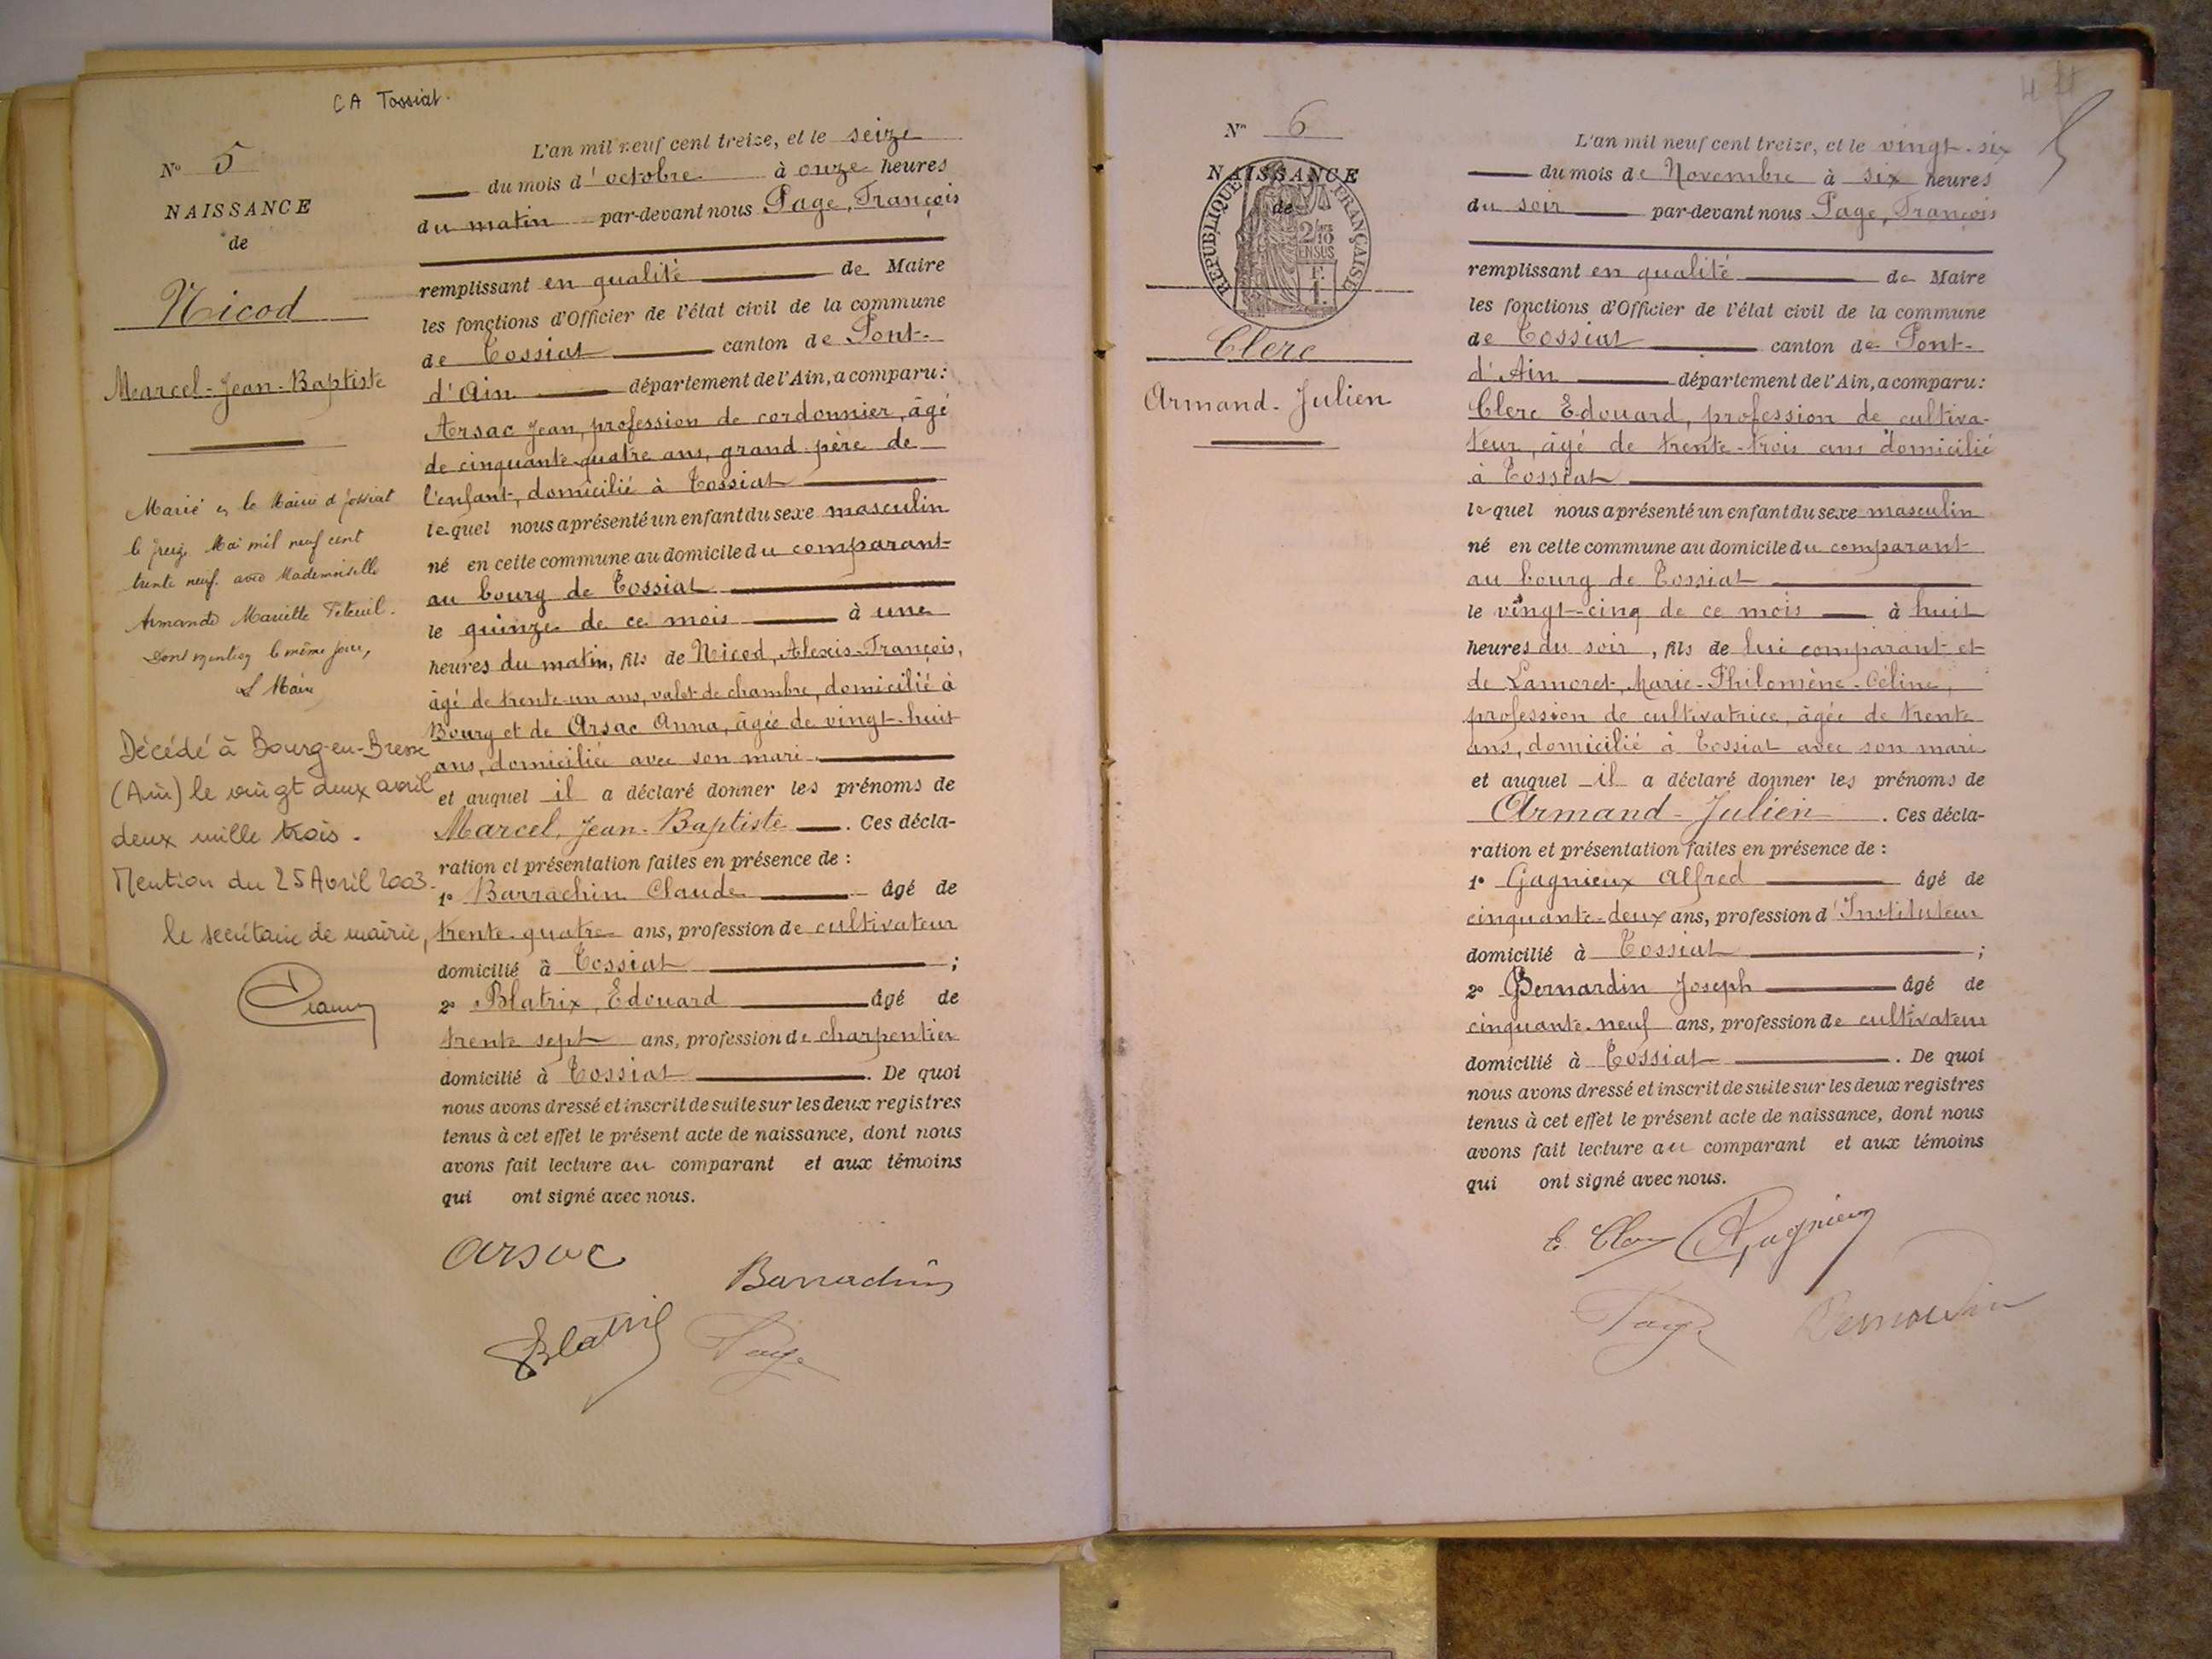 CA Tossiat.
N° 5
NAISSANCE
de
Nicod
Marcel-Jean-Baptiste
Marié en la Mairie de Tossiat
le treize Mai mil neuf cent
trente neuf avec Mademoiselle
Armande Marielle
Dont mention le même jour,
Le Maire
Décédé à Bourg-en-Bresse
(Ain) le vingt deux avril
deux mille trois.
Mention du 25 Avril 2003.
le secrétaire de mairie,
L'an mil neuf cent treize, et le seize
du mois d'octobre à onze heures
du matin par-devant nous Page, François
remplissant en qualité de Maire
les fonctions d'Officier de l'état civil de la commune
de Tossiat canton de Pont-
d'Ain département de l'Ain, a comparu:
Arsac Jean, profession de cordonnier, âgé
de cinquante-quatre ans, grand-père de
l'enfant, domicilié à Tossiat
lequel nous a présenté un enfant du sexe masculin
né en cette commune au domicile du comparant
au bourg de Tossiat
le quinze de ce mois à une
heures du matin, fils de Nicod, Alexis-François,
âgé de trente-un ans, valet de chambre, domicilié à
Bourg et de Arsac Anna, âgée de vingt-huit
ans, domiciliée avec son mari
et auquel il a déclaré donner les prénoms de
Marcel, Jean-Baptiste. Ces décla-
ration et présentation faites en présence de :
1° Barrachin Claude âgé de
trente-quatre ans, profession de cultivateur
domicilié à Tossiat ;
2° Blatrix, Edouard âgé de
trente sept ans, profession de charpentier
domicilié à Tossiat. De quoi
nous avons dressé et inscrit de suite sur les deux registres
tenus à cet effet le présent acte de naissance, dont nous
avons fait lecture au comparant et aux témoins
qui ont signé avec nous.
Arsac
Barrachin
Blatrix
Page
N° 6
NAISSANCE
de
RÉPUBLIQUE FRANÇAISE
2/10
EN SUS
F.
1.
Clerc
Armand-Julien
L'an mil neuf cent treize, et le vingt-six
du mois de Novembre à six heures
du soir par-devant nous Page, François
remplissant en qualité de Maire
les fonctions d'Officier de l'état civil de la commune
de Tossiat canton de Pont-
d'Ain département de l'Ain, a comparu:
Clerc Edouard, profession de cultiva-
teur, âgé de trente-trois ans domicilié
à Tossiat
lequel nous a présenté un enfant du sexe masculin
né en cette commune au domicile du comparant
au bourg de Tossiat
le vingt-cinq de ce mois à huit
heures du soir, fils de lui comparant et
de Lamoret, Marie-Philomène-Céline,
profession de cultivatrice, âgée de trente
ans, domicilié à Tossiat avec son mari
et auquel il a déclaré donner les prénoms de
Armand-Julien. Ces décla-
ration et présentation faites en présence de :
1° Gagnieux Alfred âgé de
cinquante-deux ans, profession d'Instituteur
domicilié à Tossiat ;
2° Bernardin Joseph âgé de
cinquante-neuf ans, profession de cultivateur
domicilié à Tossiat. De quoi
nous avons dressé et inscrit de suite sur les deux registres
tenus à cet effet le présent acte de naissance, dont nous
avons fait lecture au comparant et aux témoins
qui ont signé avec nous.
E. Clerc Gagnieux
Page Bernardin